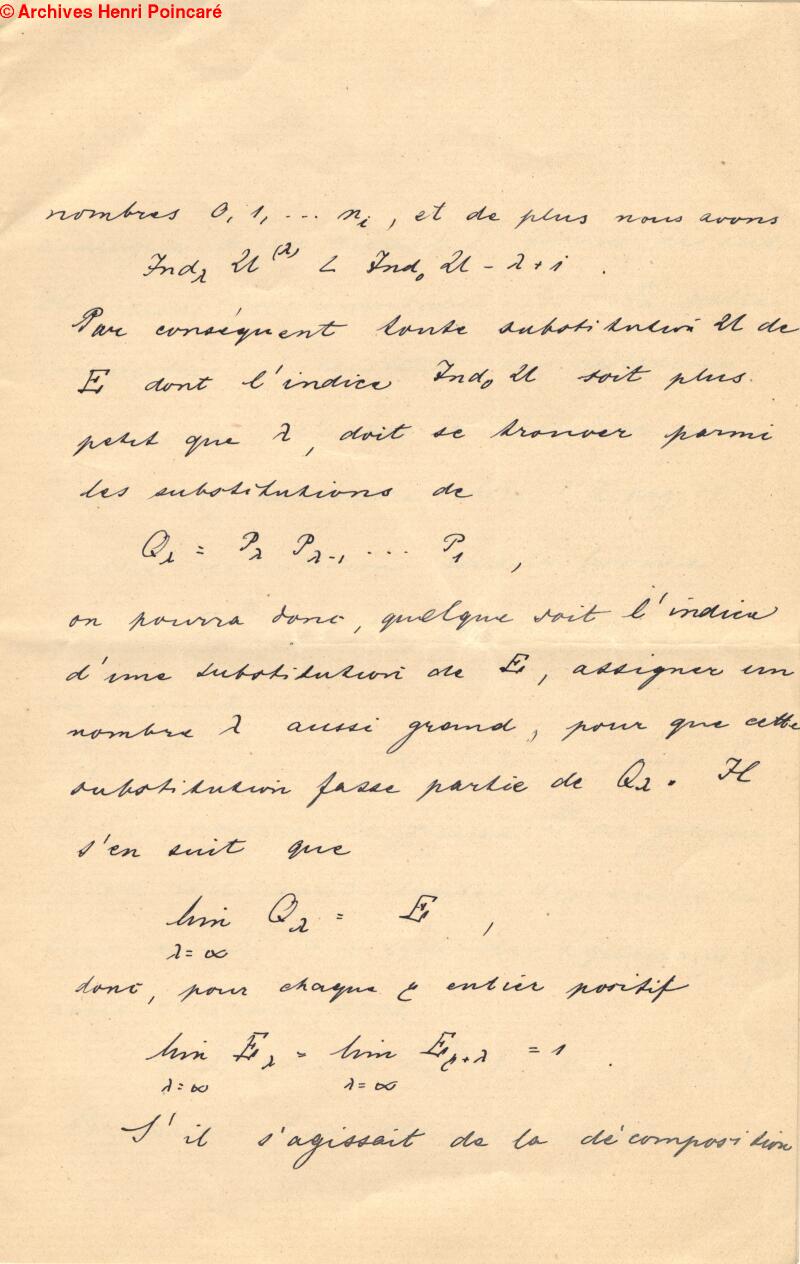 © Archives Henri Poincaré
nombres 0, 1, ... nᵢ, et de plus nous avons
Ind_λ 𝔄^(λ) < Ind₀ 𝔄 - λ + 1 .
Par conséquent toute substitution 𝔄 de
E dont l'indice Ind₀ 𝔄 soit plus
petit que λ, doit se trouver parmi
les substitutions de
Q_λ = P_λ P_λ-1 ... P₁ ,
on pourra donc, quelque soit l'indice
d'une substitution de E, assigner un
nombre λ aussi grand, pour que cette
substitution fasse partie de Q_λ. Il
s'en suit que
lim Q_λ = E ,
λ = ∞
donc, pour chaque entier positif
lim E_λ = lim E = 1 .
λ = ∞ λ = ∞
S'il s'agissait de la décomposition